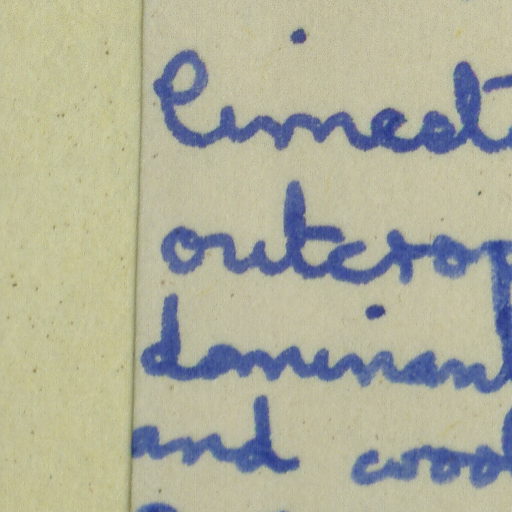 limest
outcrop
dominant
and wood